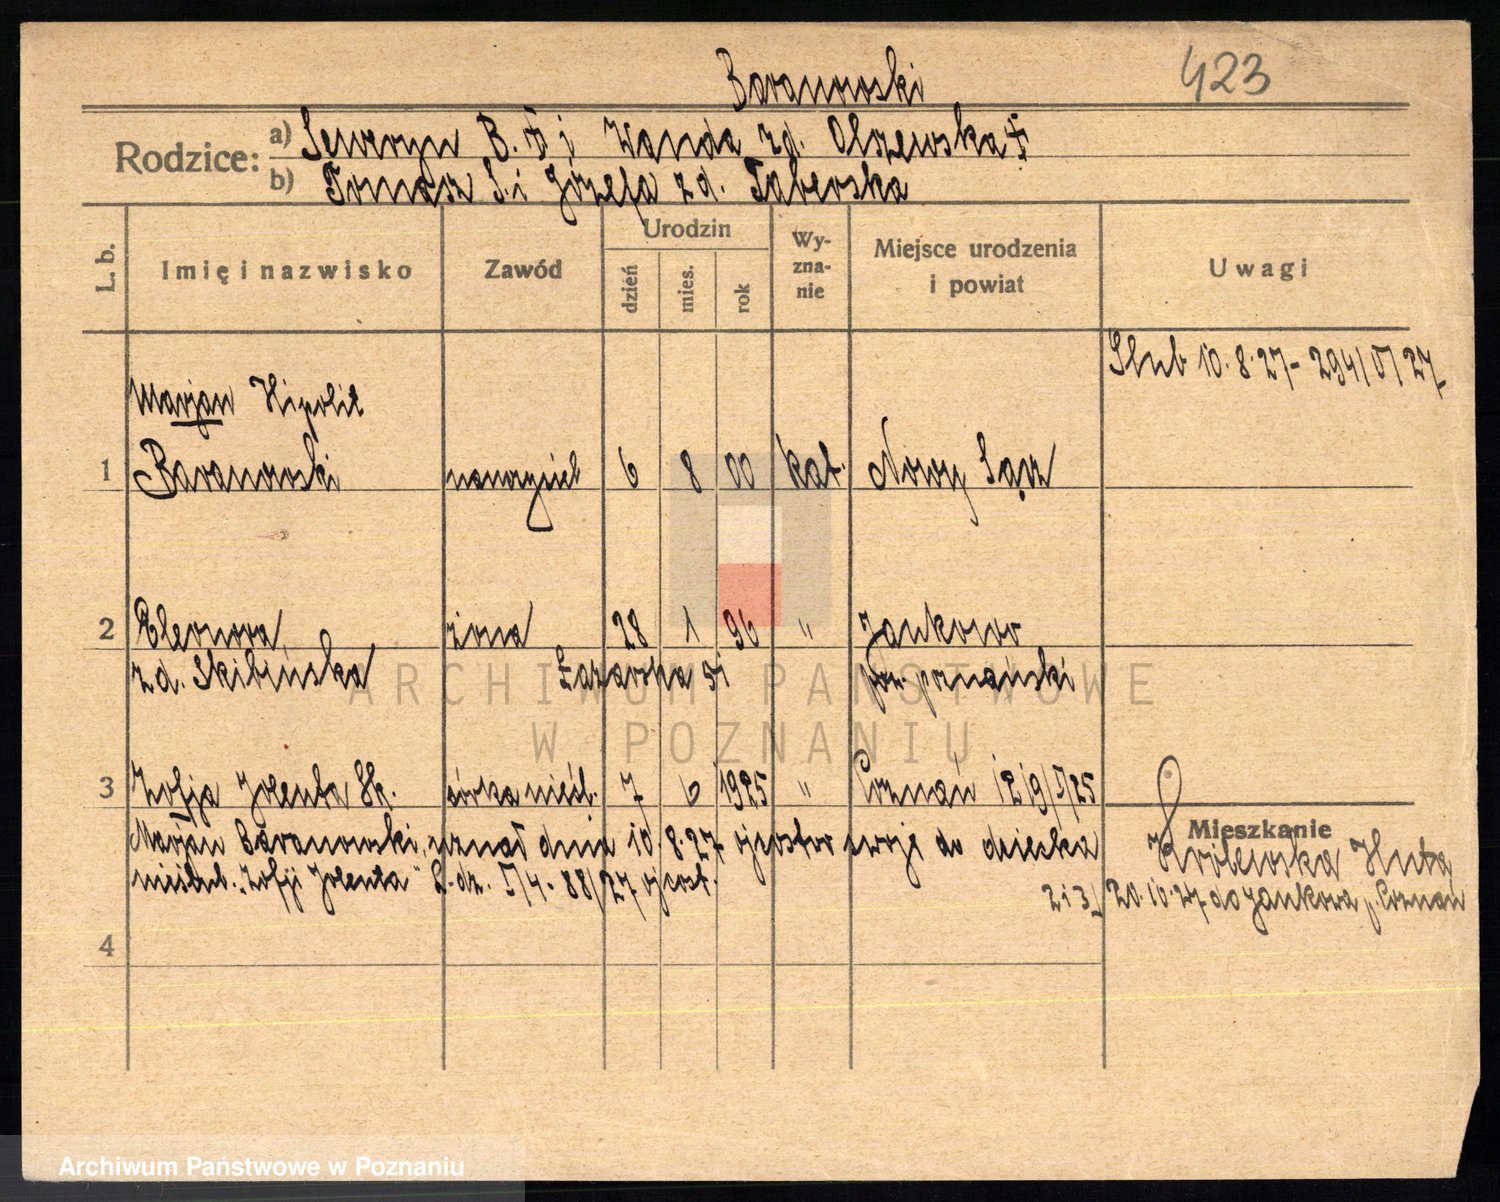 Baranowski
423
Rodzice: a) Seweryn B. i Wanda zd. Olszewska
b) Tomasz S. i Józefa zd. Taberska
L. b.
Imię i nazwisko
Zawód
Urodzin
dzień
mies.
rok
Wy-
zna-
nie
Miejsce urodzenia
i powiat
Uwagi
Ślub 10.8.27 - 294/V/27
Marjan Hipolit
1 Baranowski nauczyciel 6 8 00 kat. Nowy Sącz
2 Eleonora żona 28 1 96 " Jankowo
zd. Skibińska Łazarska 5 pow. poznański
3 Zofja Jolenta Sk. córka nieśl. 7 6 1925 " Poznań 1219/V/25
Marjan Baranowski uznał dnia 10.8.27 ojcostwo swoje do dziecka
nieślub. "Zofji Jolenta" L. dz. V/4 - 88/27 ojcost.
Mieszkanie
Królewska Huta
2 i 3 20.10.27 do Jankowa p. Poznań
4
ARCHIWUM PAŃSTWOWE
W POZNANIU
Archiwum Państwowe w Poznaniu